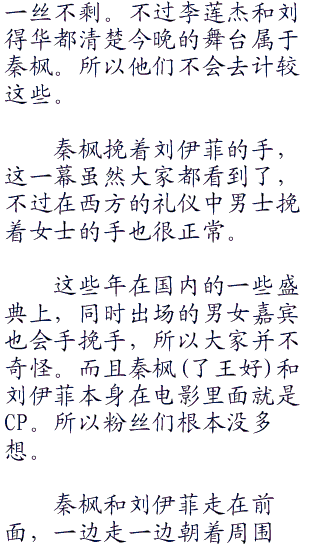 一丝不剩。不过李莲杰和刘
得华都清楚今晚的舞台属于
秦枫。所以他们不会去计较
这些。
秦枫挽着刘伊菲的手，
这一幕虽然大家都看到了，
不过在西方的礼仪中男士挽
着女士的手也很正常。
这些年在国内的一些盛
典上，同时出场的男女嘉宾
也会手挽手，所以大家并不
奇怪。而且秦枫(了王好)和
刘伊菲本身在电影里面就是
CP。所以粉丝们根本没多
想。
秦枫和刘伊菲走在前
面，一边走一边朝着周围